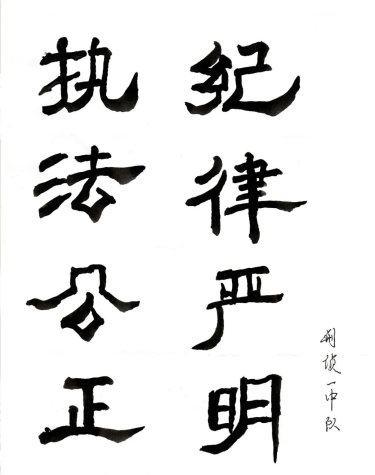 纪律严明
执法公正
刑侦一中队